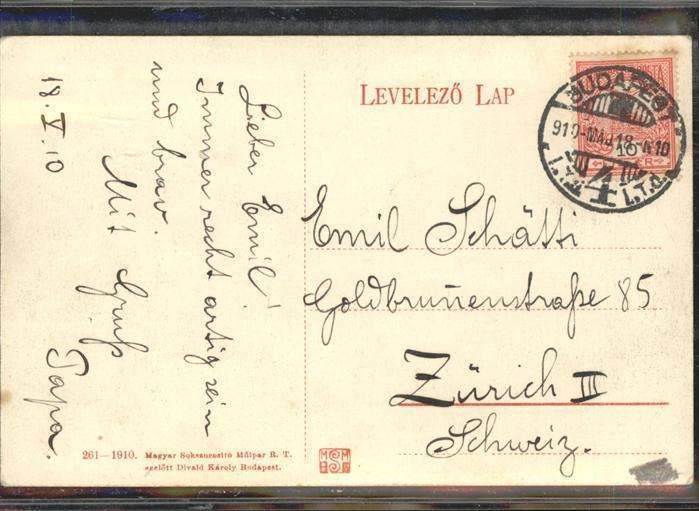 18. V. 10
Lieber Emil!
Immer recht artig sein
und brav.
Mit Gruß
Papa.
LEVELEZŐ LAP
BUDAPEST
Emil Schätti
Goldbrunnenstraße 85
Zürich III
Schweiz.
261—1910. Magyar Sokszorosító Műipar R. T.
ezelőtt Divald Károly Budapest.